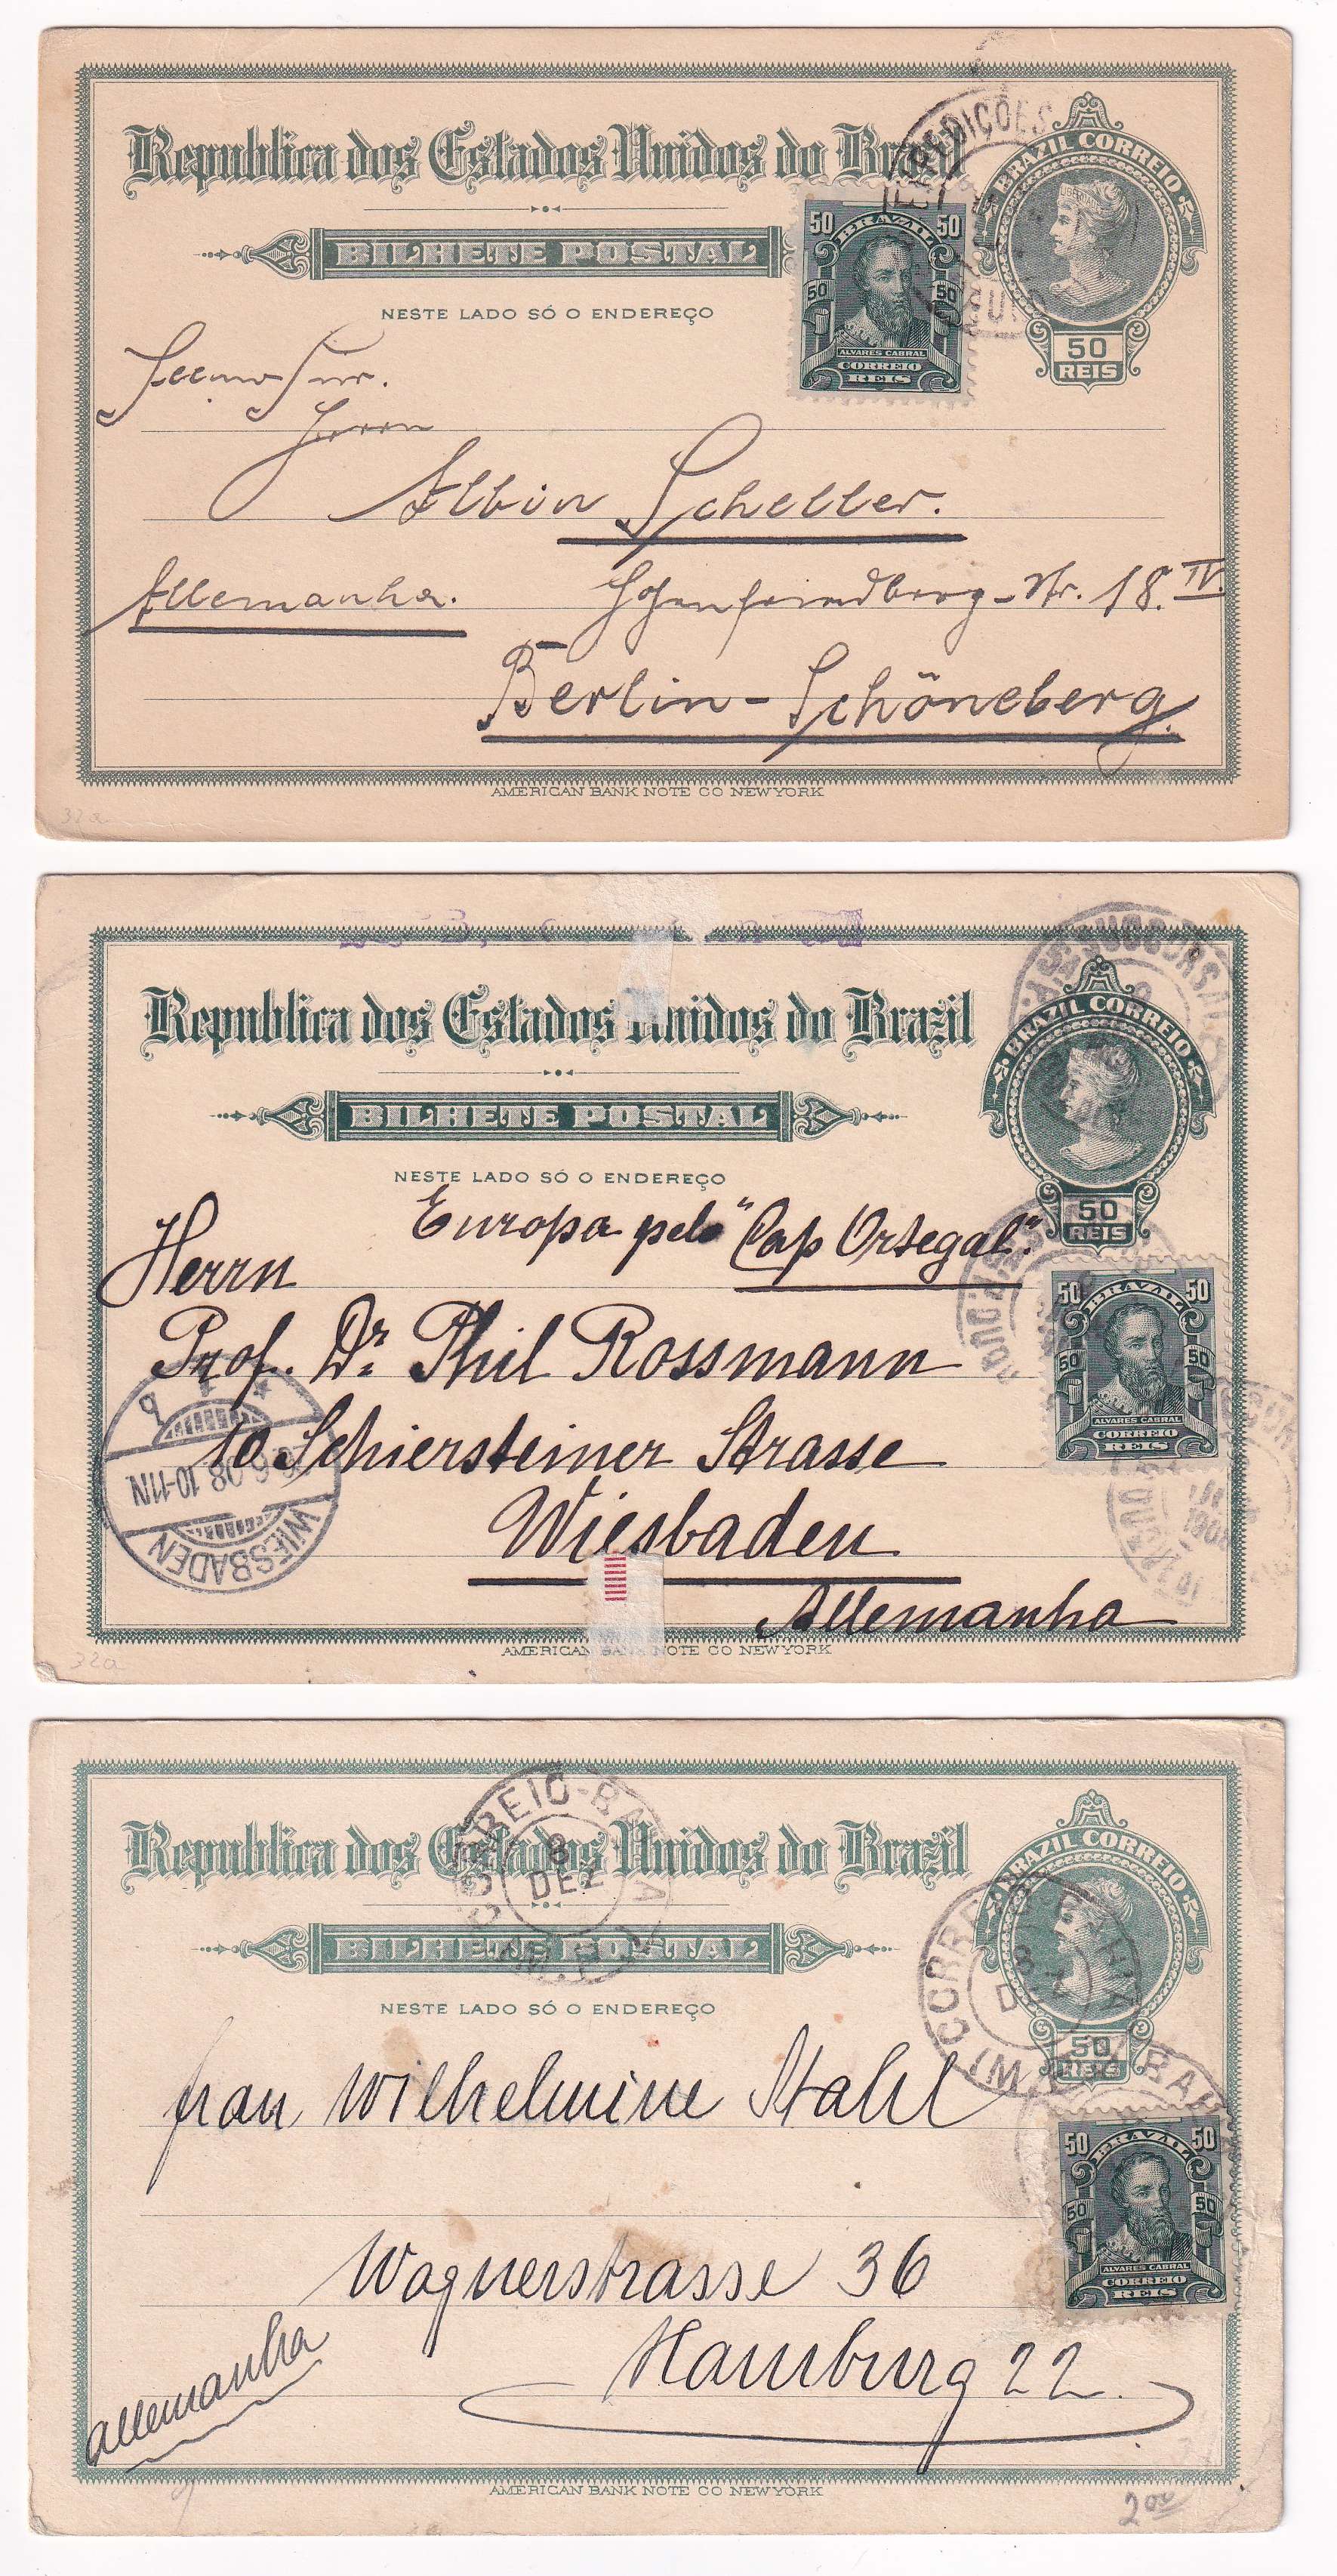 Republica dos Estados Unidos do Brazil
BILHETE POSTAL
NESTE LADO SÓ O ENDEREÇO
EXPEDIÇÕES
BRAZIL CORREIO
50
REIS
50 BRAZIL 50
50 50
ALVARES CABRAL
CORREIO
REIS
Herrn
Albin Scheller.
Allemanha. Hohenfriedberg-Str. 18. IV.
Berlin-Schöneberg.
AMERICAN BANK NOTE CO NEW YORK
32a
Republica dos Estados Unidos do Brazil
BRAZIL CORREIO
BILHETE POSTAL
NESTE LADO SÓ O ENDEREÇO
50
REIS
Europa pelo "Cap Ortegal".
Herrn
50 BRAZIL 50
50 50
ALVARES CABRAL
CORREIO
REIS
Prof. Dr. Phil Rossmann
10 Schiersteiner Strasse
Wiesbaden
Allemanha
WIESBADEN
6.08 10-11N
1908
AMERICAN BANK NOTE CO NEW YORK
32a
Republica dos Estados Unidos do Brazil
CORREIO-BAHIA
8
DEZ
BRAZIL CORREIO
BILHETE POSTAL
NESTE LADO SÓ O ENDEREÇO
CORREIO BAHIA
8
50
REIS
Frau Wilhelmine Stahl
50 BRAZIL 50
50 50
ALVARES CABRAL
CORREIO
REIS
Wagnerstrasse 36
Hamburg 22.
Allemanha
AMERICAN BANK NOTE CO NEW YORK
200